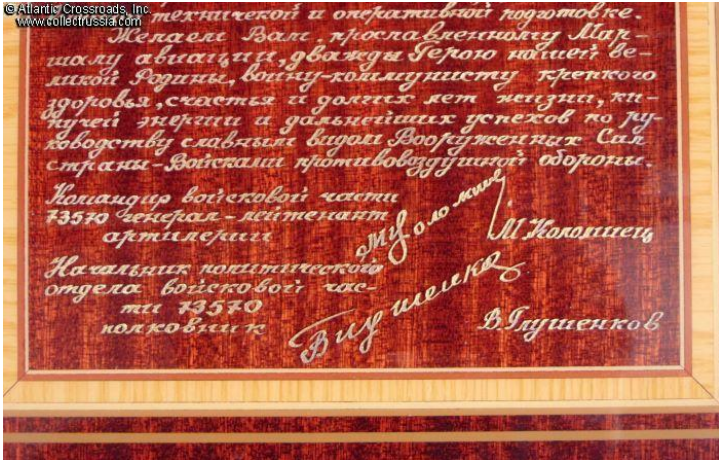 © Atlantic Crossroads, Inc.
www.collectrussia.com
технической и оперативной подготовке.
Желаем Вам, прославленному Мар-
шалу авиации, дважды Герою нашей ве-
ликой Родины, воину-коммунисту крепкого
здоровья, счастья и долгих лет жизни, ки-
пучей энергии и дальнейших успехов по ру-
ководству славным видом Вооруженных Сил
страны-Войсками противовоздушной обороны.
Командир войсковой части
73570 генерал-лейтенант
артилерии
М. Коломиец
Начальник политического
отдела войсковой час-
ти 73570
полковник
В. Глушенков